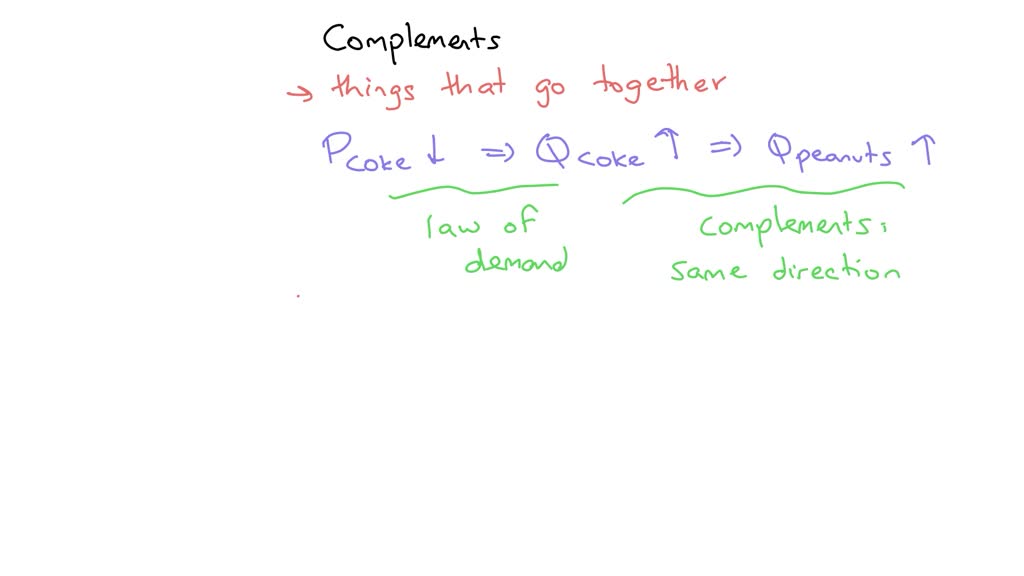 Complements
→ things that go together
P coke ↓ ⇒ Q coke ↑ ⇒ Q peanuts ↑
law of
demand
complements:
same direction